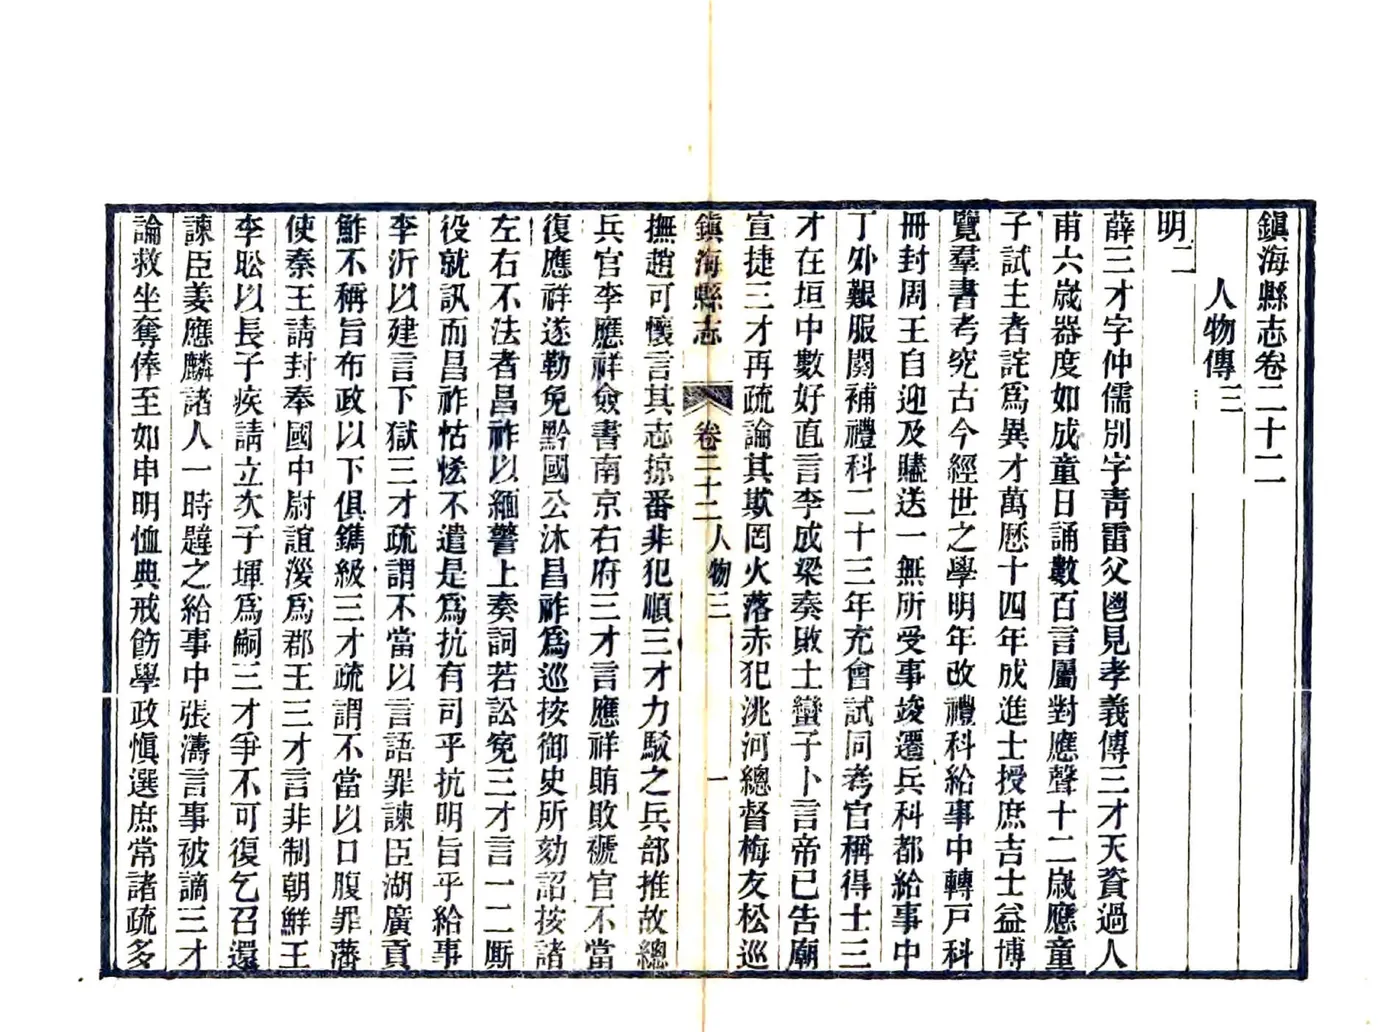 鎮海縣志卷二十二
人物傳三
明二
薛三才字仲儒別字靑雷父邕見孝義傳三才天資過人
甫六歲器度如成童日誦數百言屬對應聲十二歲應童
子試主者詫爲異才萬厯十四年成進士授庶吉士益博
覽羣書考究古今經世之學明年改禮科給事中轉戸科
冊封周王自迎及贐送一無所受事竣遷兵科都給事中
丁外艱服闋補禮科二十三年充會試同考官稱得士三
才在垣中數好直言李成梁奏敗土蠻子卜言帝已告廟
宣捷三才再疏論其欺罔火落赤犯洮河總督梅友松巡
鎮海縣志 卷二十二 人物三 一
撫趙可懷言其志掠番非犯順三才力駁之兵部推故總
兵官李應祥僉書南京右府三才言應祥賄敗褫官不當
復應祥遂勒免黔國公沐昌祚爲巡按御史所劾詔按諸
左右不法者昌祚以緬警上奏詞若訟寃三才言一二厮
役就訊而昌祚怙恡不遣是爲抗有司乎抗明旨乎給事
李沂以建言下獄三才疏謂不當以言語罪諫臣湖廣貢
鮓不稱旨布政以下俱鐫級三才疏謂不當以口腹罪藩
使秦王請封奉國中尉誼漫爲郡王三才言非制朝鮮王
李昖以長子疾請立次子琿爲嗣三才爭不可復乞召還
諫臣姜應麟諸人一時韙之給事中張濤言事被謫三才
論救坐奪俸至如申明恤典戒飭學政愼選庶常諸疏多